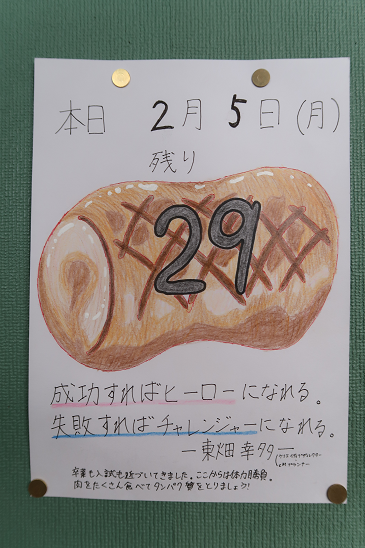 本日 2月 5日(月)
残り
29
成功すればヒーローになれる。
失敗すればチャレンジャーになれる。
ー東畑 幸多ー
卒業も入試も近づいてきました。ここからは体力勝負。
肉をたくさん食べてタンパク質をとりましょう!